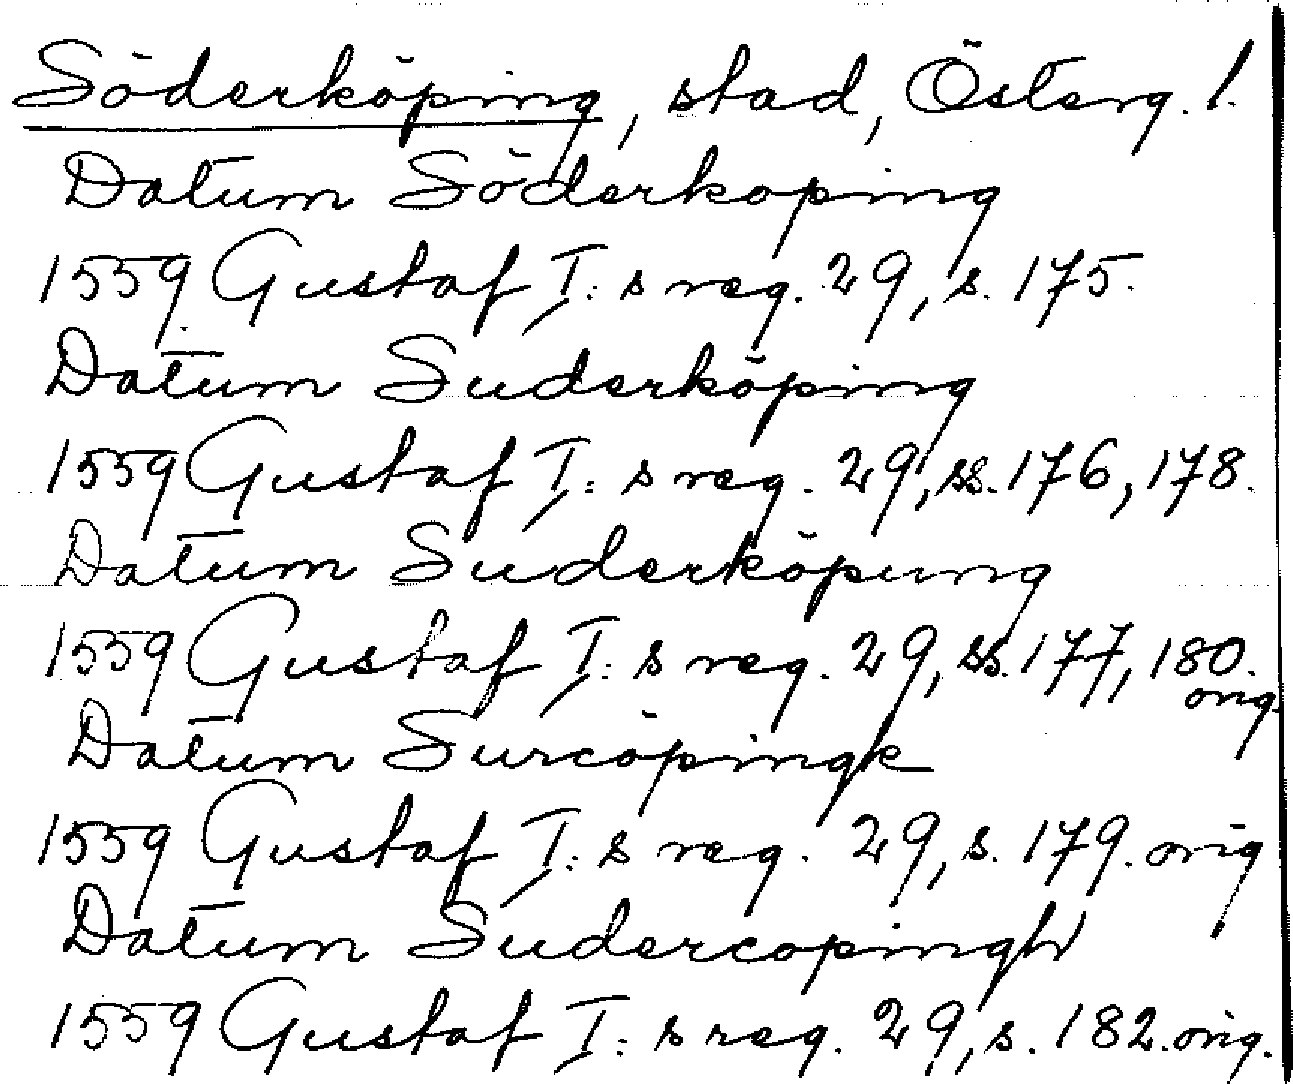 Söderköping, stad, Österg. l.
Datum Söderkoping
1559 Gustaf I:s reg. 29, s. 175.
Datum Suderköping
1559 Gustaf I:s reg. 29, ss. 176, 178.
Datum Suderköpung
1559 Gustaf I:s reg. 29, ss. 177, 180.
orig.
Datum Surcöpingk
1559 Gustaf I:s reg. 29, s. 179. orig
Datum Sudercopingh
1559 Gustaf I:s reg. 29, s. 182. orig.